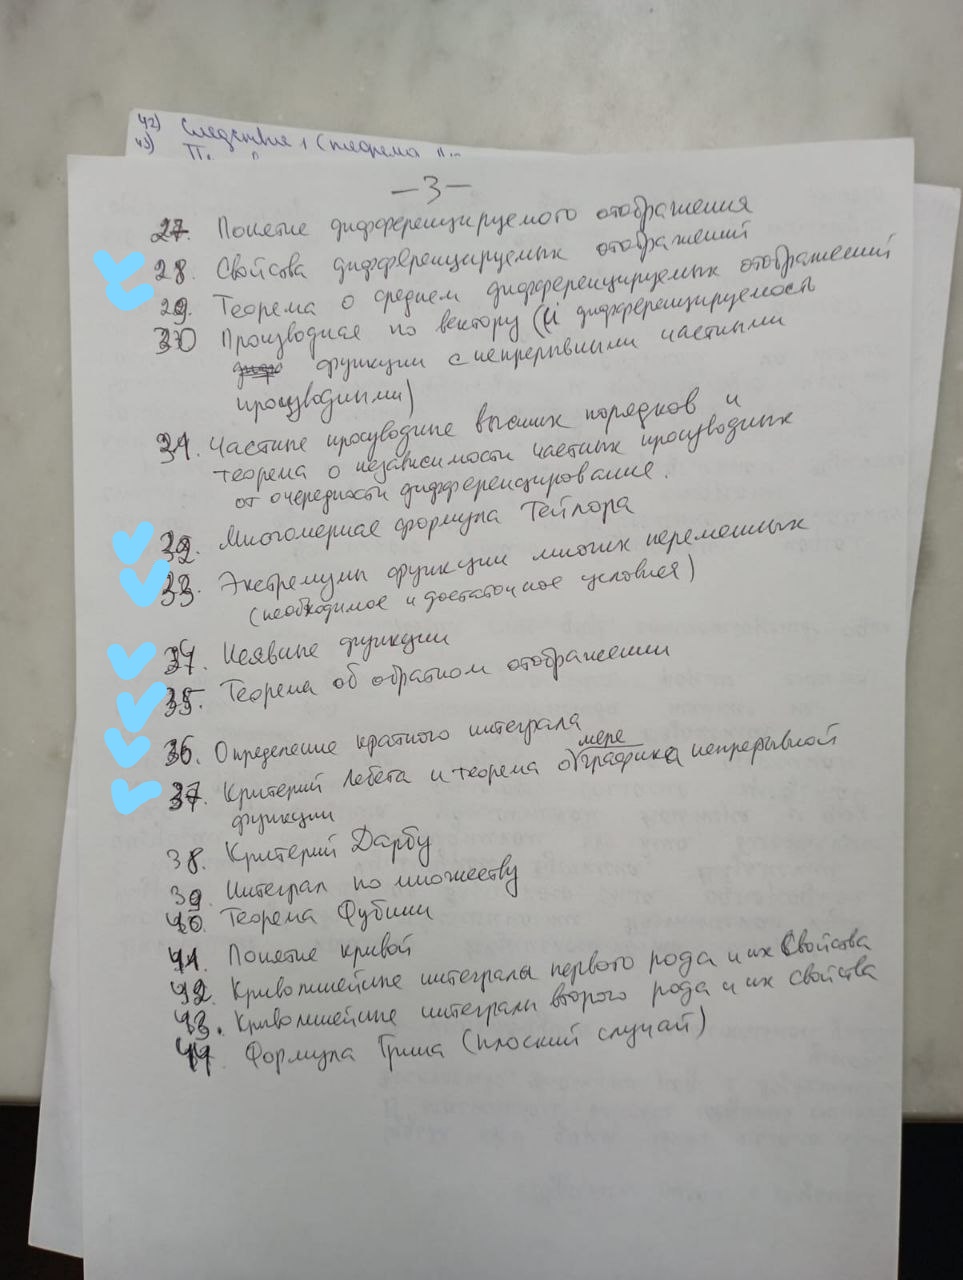 42) Следствие 1 (теорема
43) П
—3—
27. Понятие дифференцируемого отображения
28. Свойства дифференцируемых отображений
29. Теорема о среднем дифференцируемых отображений
30 Производная по вектору (и дифференцируемость
функции с непрерывными частными
производными)
31. Частные производные высших порядков и
теорема о независимости частных производных
от очередности дифференцирование.
32. Многомерная формула Тейлора
33. Экстремумы функции многих переменных
(необходимое и достаточное условия)
34. Неявные функции
35. Теорема об обратном отображении
36. Определение кратного интеграла
37. Критерий Лебега и теорема о мере графика непрерывной
функции
38. Критерий Дарбу
39. Интеграл по множеству
40. Теорема Фубини
41. Понятие кривой
42. Криволинейные интегралы первого рода и их свойства
43. Криволинейные интегралы второго рода и их свойства
44. Формула Грина (плоский случай)